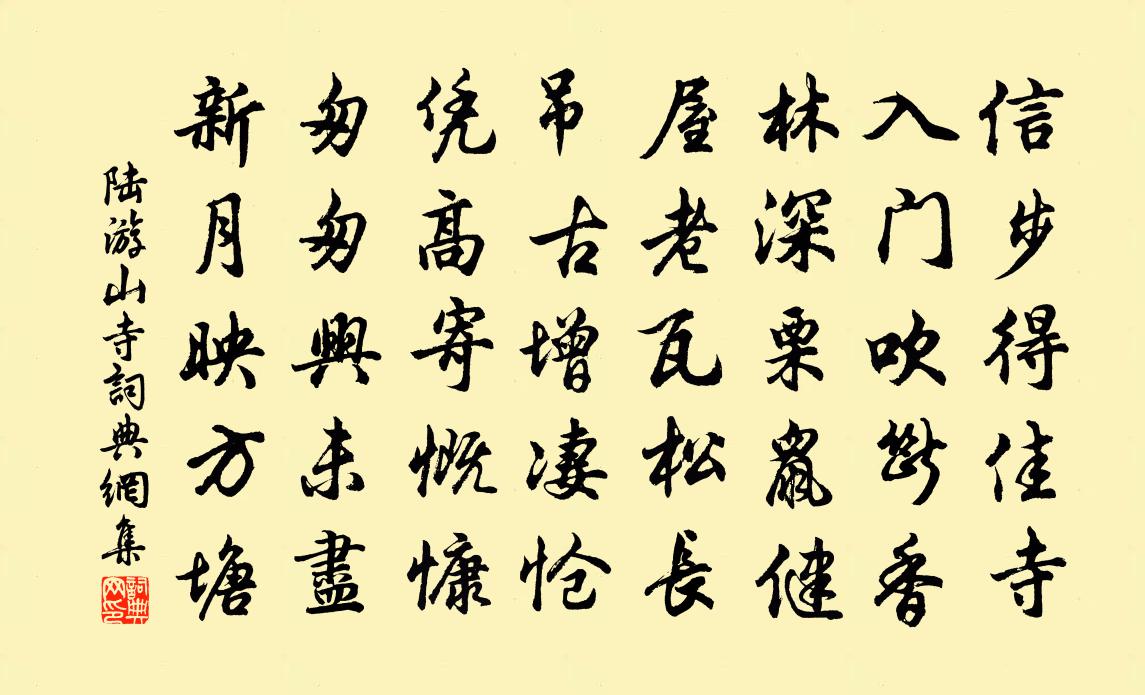 信步得佳寺
入门吹断香
林深栗鼠健
屋老瓦松長
吊古增凄怆
凭高寄慨慷
匆匆興未盡
新月映方塘
陆游山寺詞典網集
詞典网印